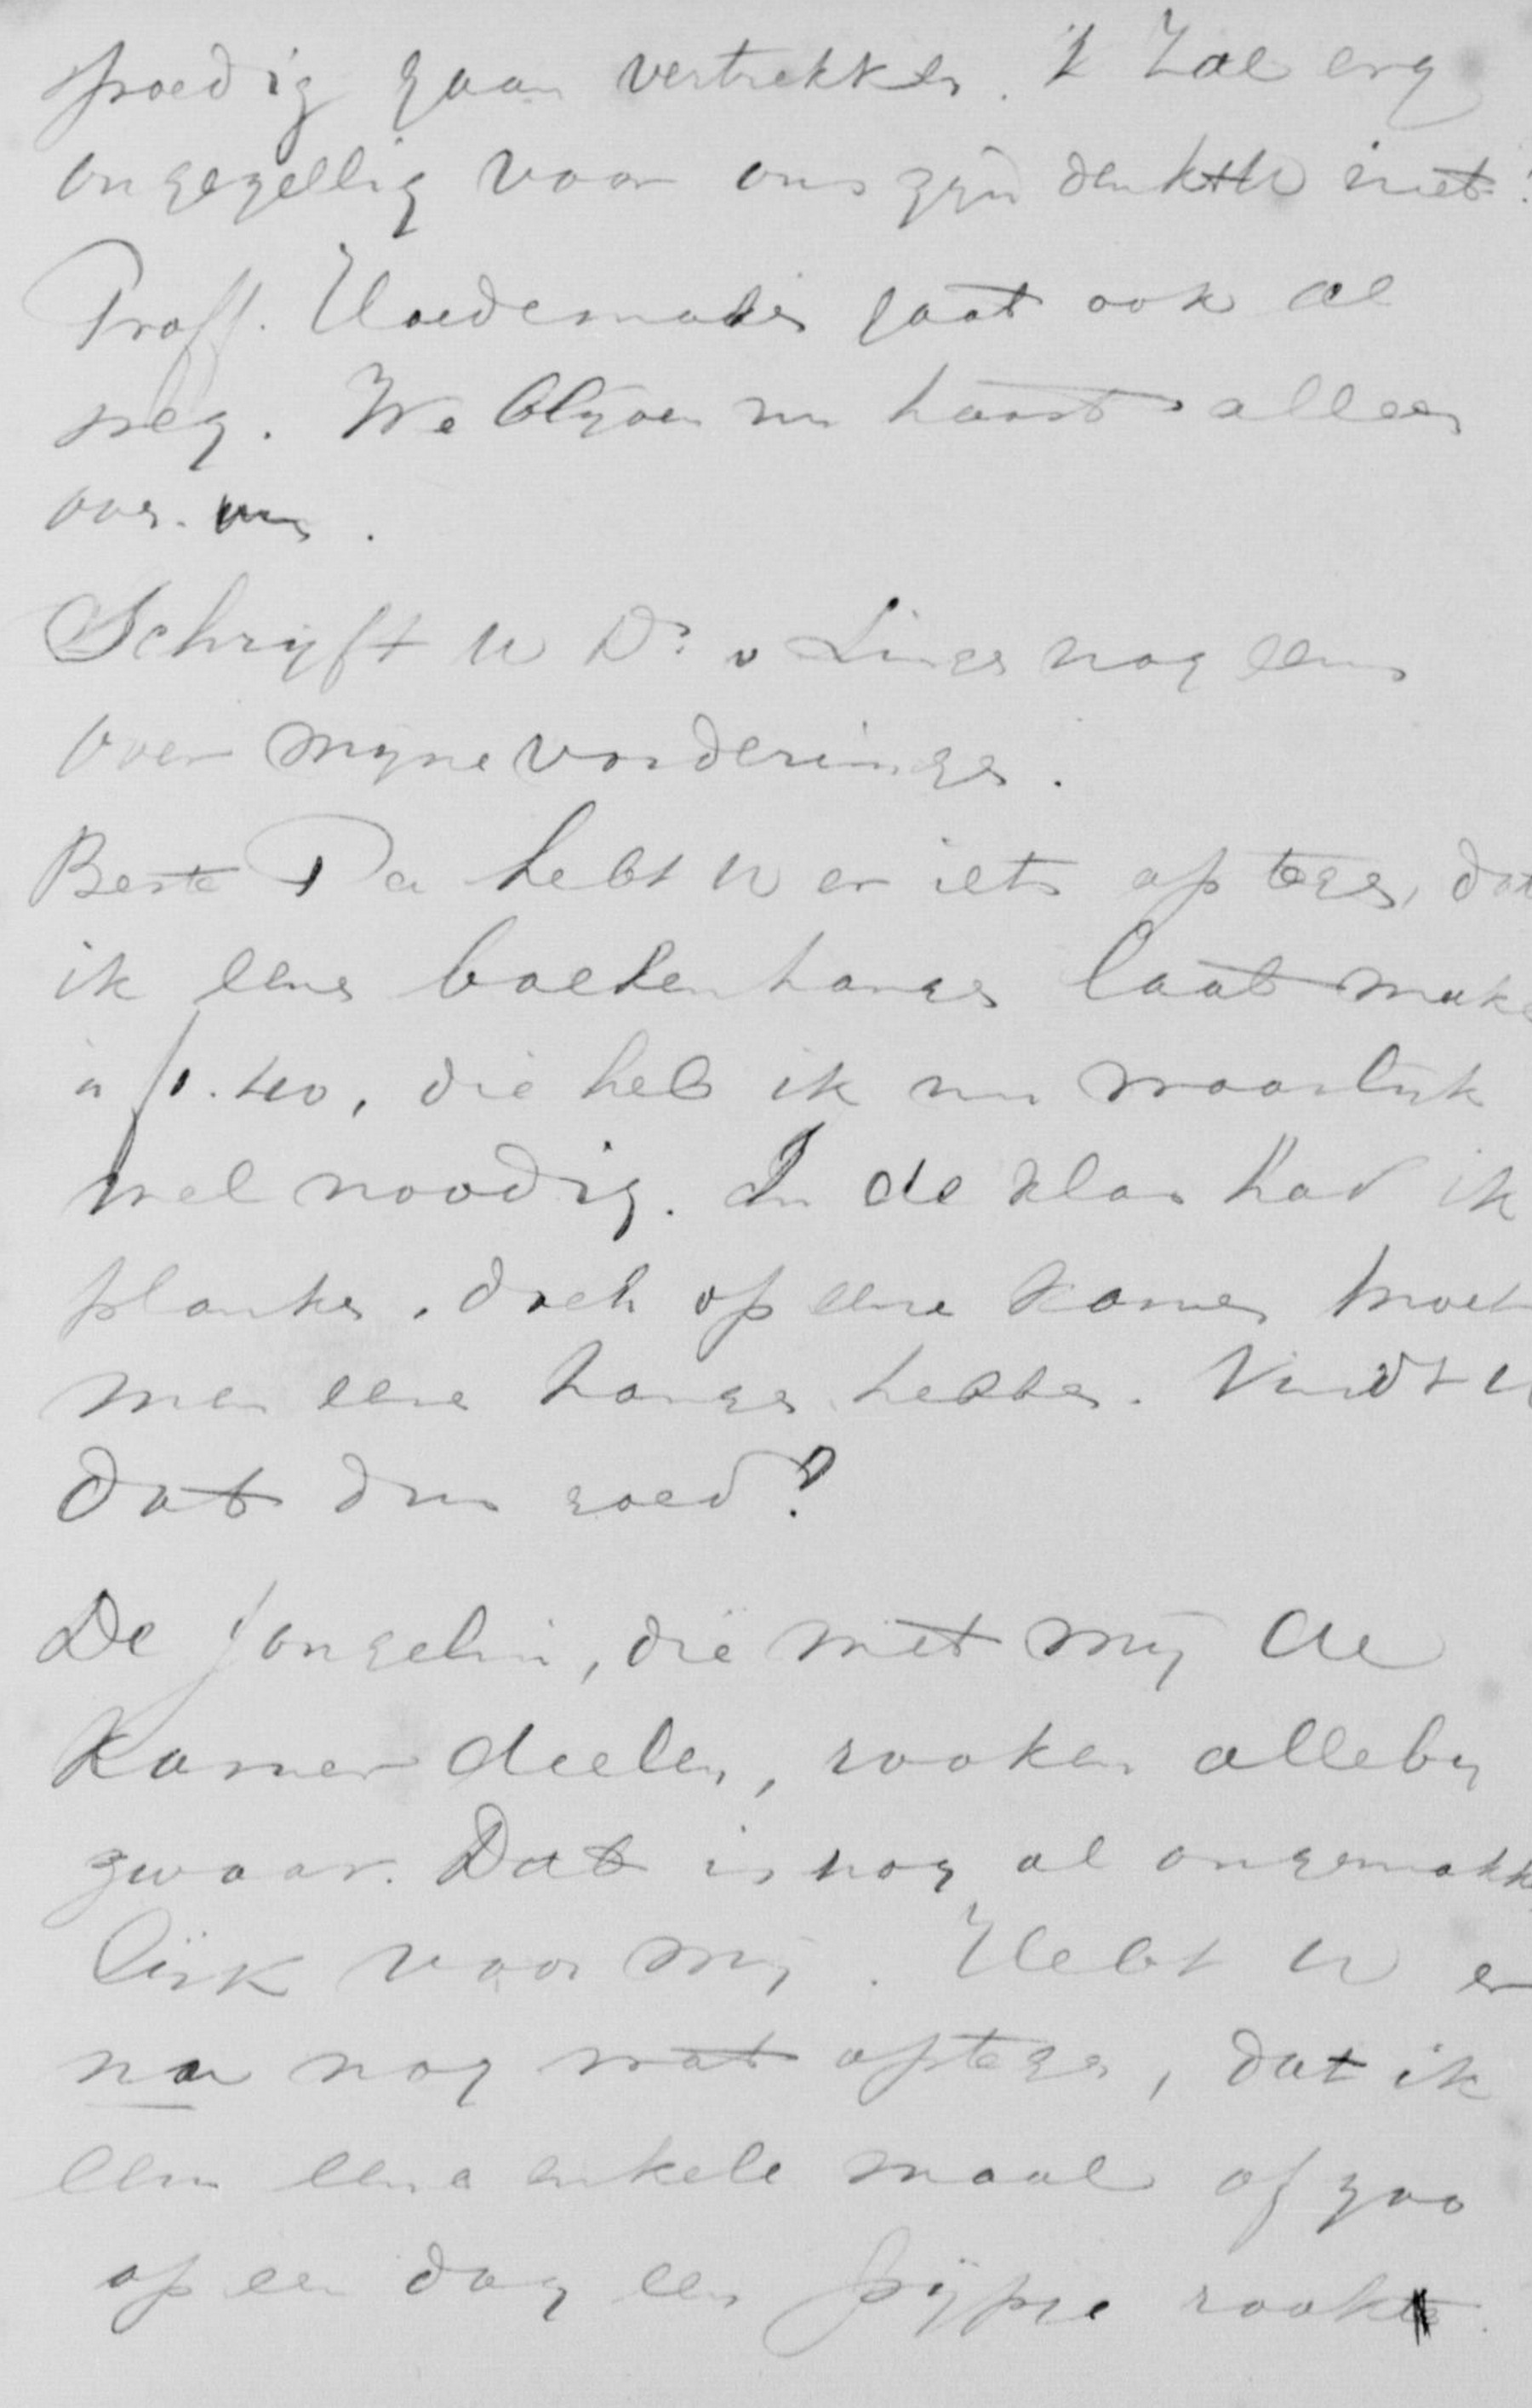 spoedig gaan vertrekken. 't Zal erg
ongezellig voor ons zijn denkt U niet?
Proff. Hoedemaker gaat ook al
weg. We blijven nu haast alleen
over.
Schrijft U Dr. v Lingen nog eens
over mijne vorderingen.
Beste Pa hebt U er iets op tegen, dat
ik eens boekenhanger laat make
à f1.40, die heb ik nu waarlijk
wel noodig. In de klas had ik
planken, doch op eene kamer moet
men eene hanger hebben. Vindt U
dat dus goed?
De jongelui, die met mij de
Kamer deelen, rooken allebij
zwaar. Dat is nog al ongemakk
lijk voor mij. Hebt U er
nu nog wat op tegen, dat ik
eens eene enkele maal of zoo
op een dag een pijpje rookt.